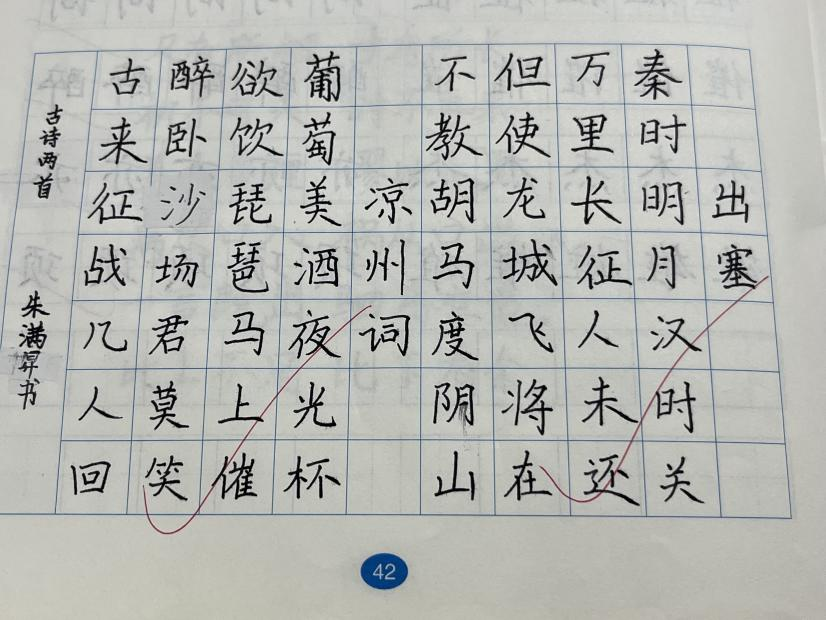 出塞
秦时明月汉时关
万里长征人未还
但使龙城飞将在
不教胡马度阴山
凉州词
葡萄美酒夜光杯
欲饮琵琶马上催
醉卧沙场君莫笑
古来征战几人回
古诗两首
朱满昇书
42